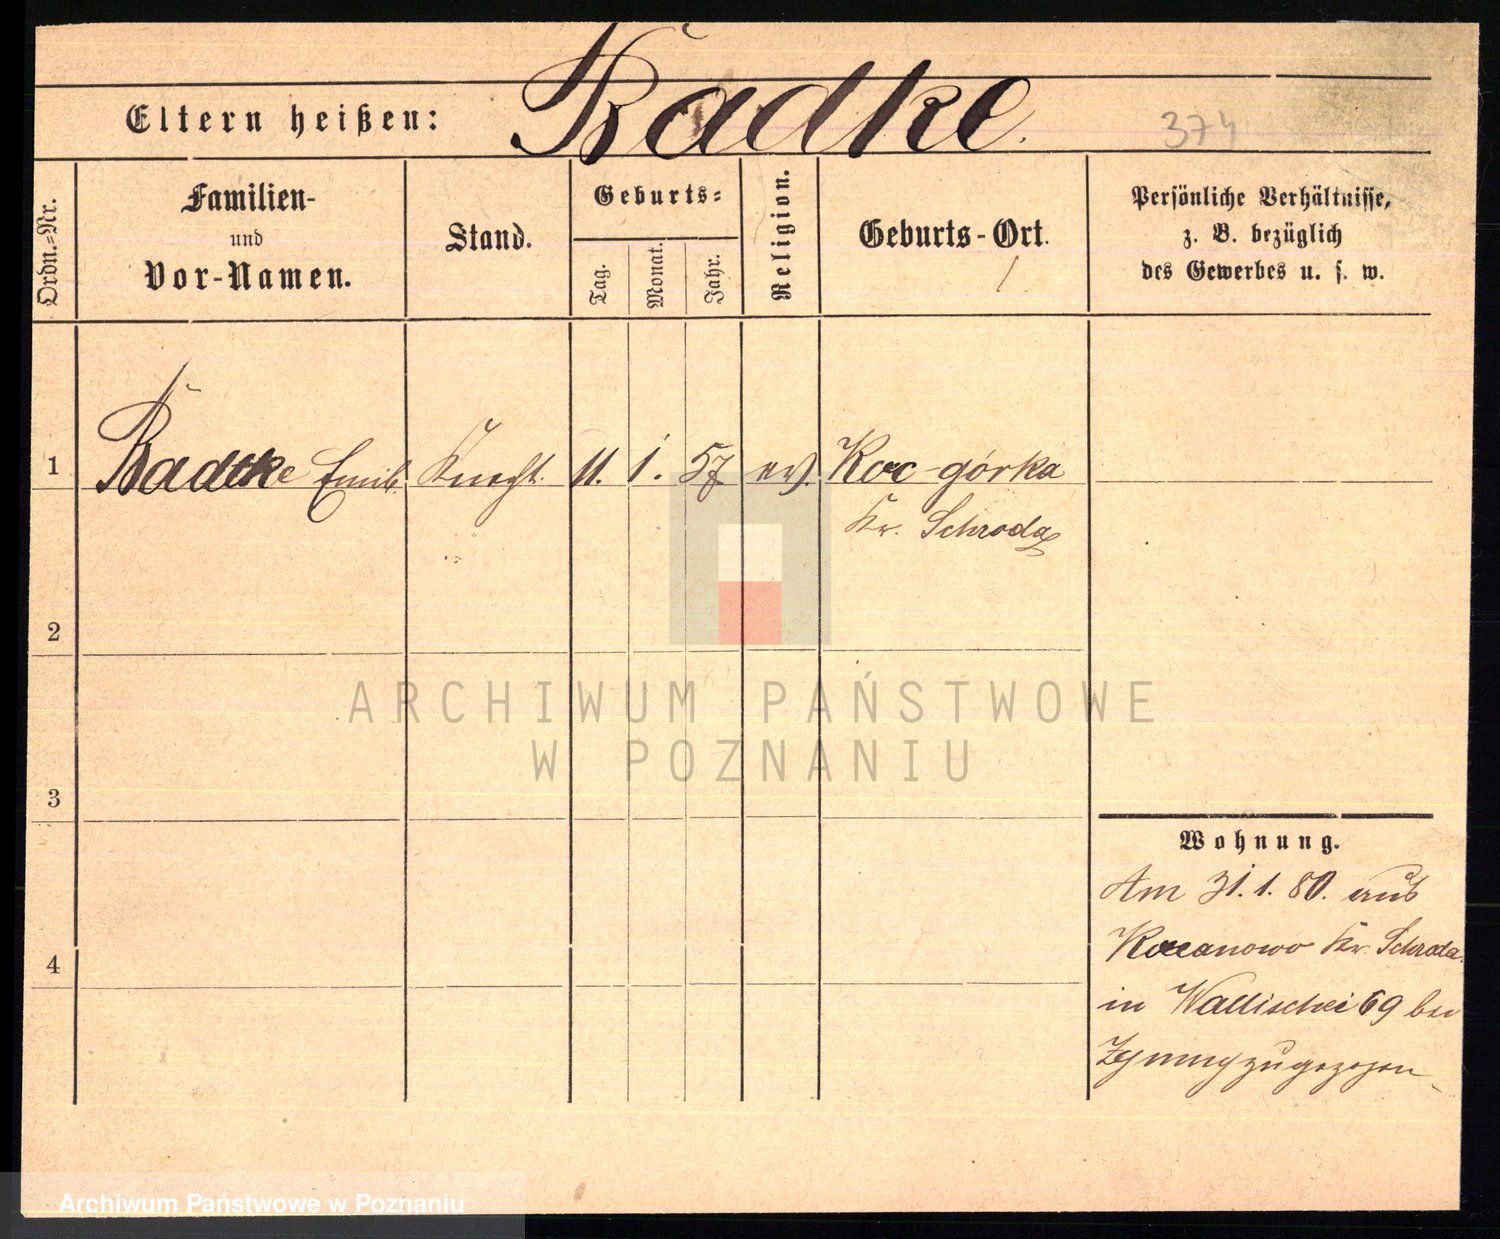 Radke
Eltern heißen:
374
Ordn.=Nr.
Familien-
und
Vor-Namen.
Stand.
Geburts=
Tag.
Monat.
Jahr.
Religion.
Geburts-Ort.
Persönliche Verhältnisse,
z. B. bezüglich
des Gewerbes u. s. w.
1
Radtke Emil Knecht. 11. 1. 57 ev. Koc-górka
Kr. Schroda
2
3
4
Wohnung.
Am 31. 1. 80. aus
Kr. Schroda.
in Wallischei 69 bei
zugezogen
ARCHIWUM PAŃSTWOWE
W POZNANIU
Archiwum Państwowe w Poznaniu